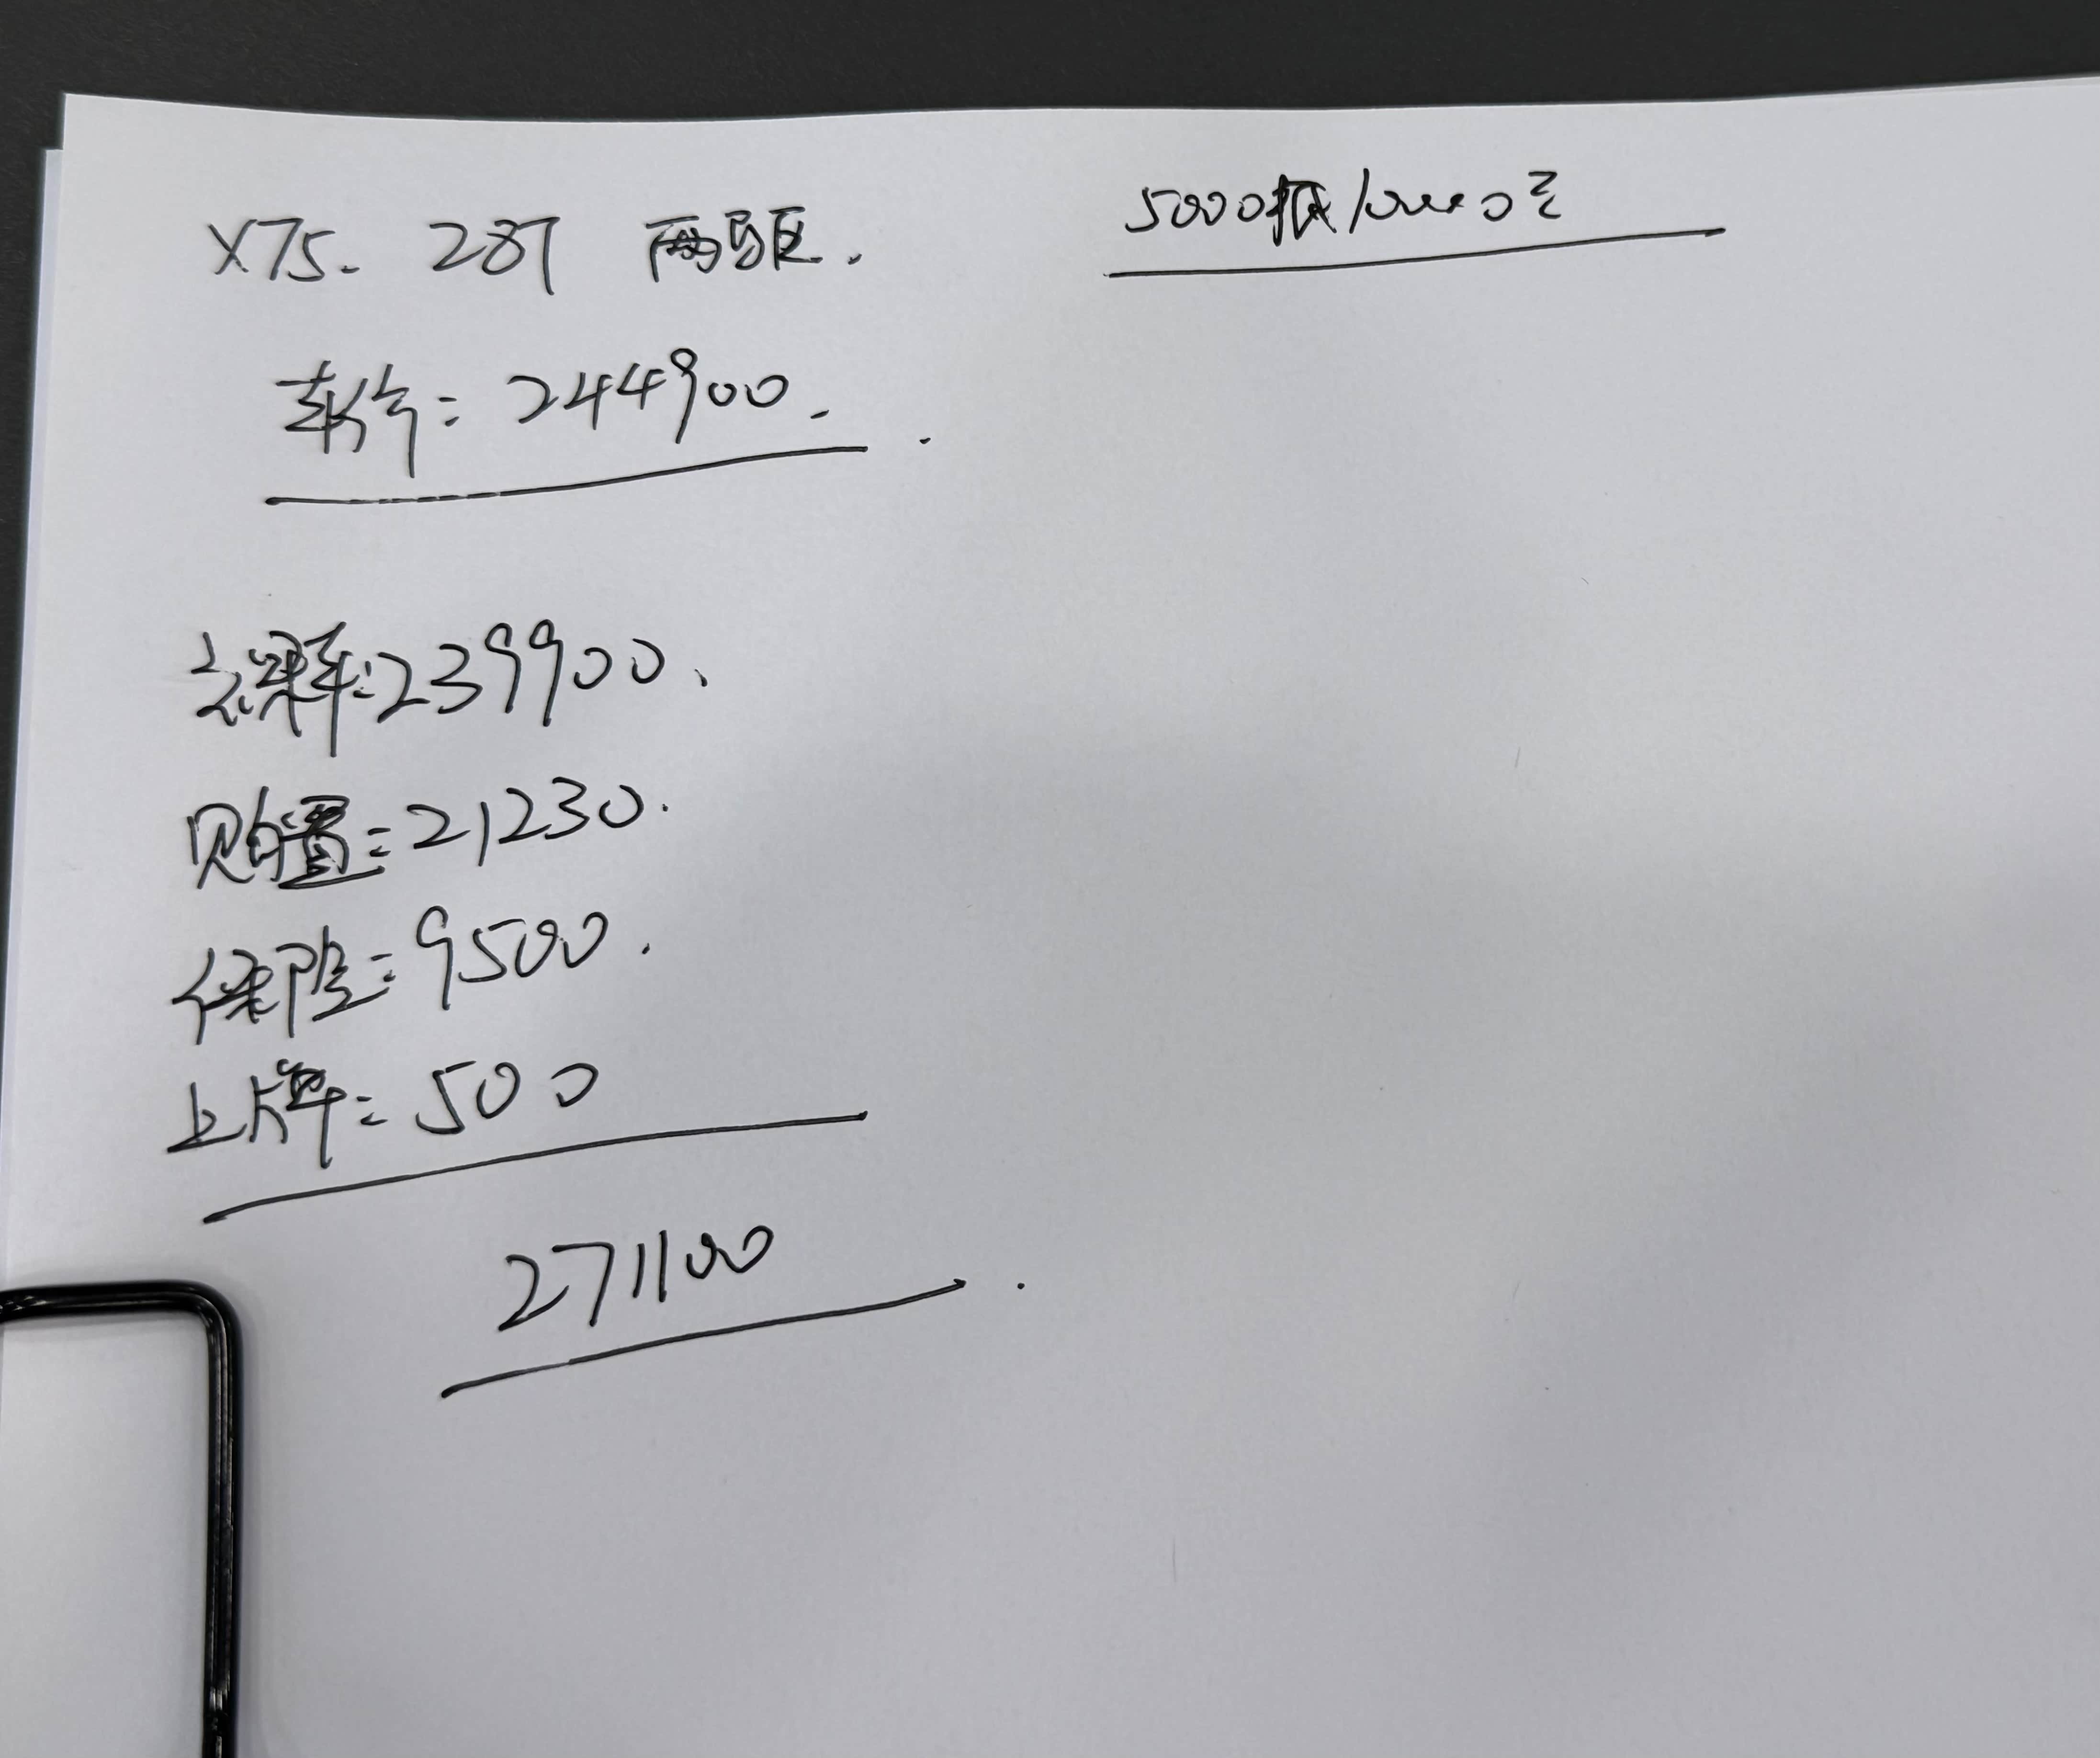 XT5. 28T 两驱.
5000抵10000元
车价: 244900.
裸车: 239900.
购置: 21230.
保险: 9500.
上牌: 500
271100